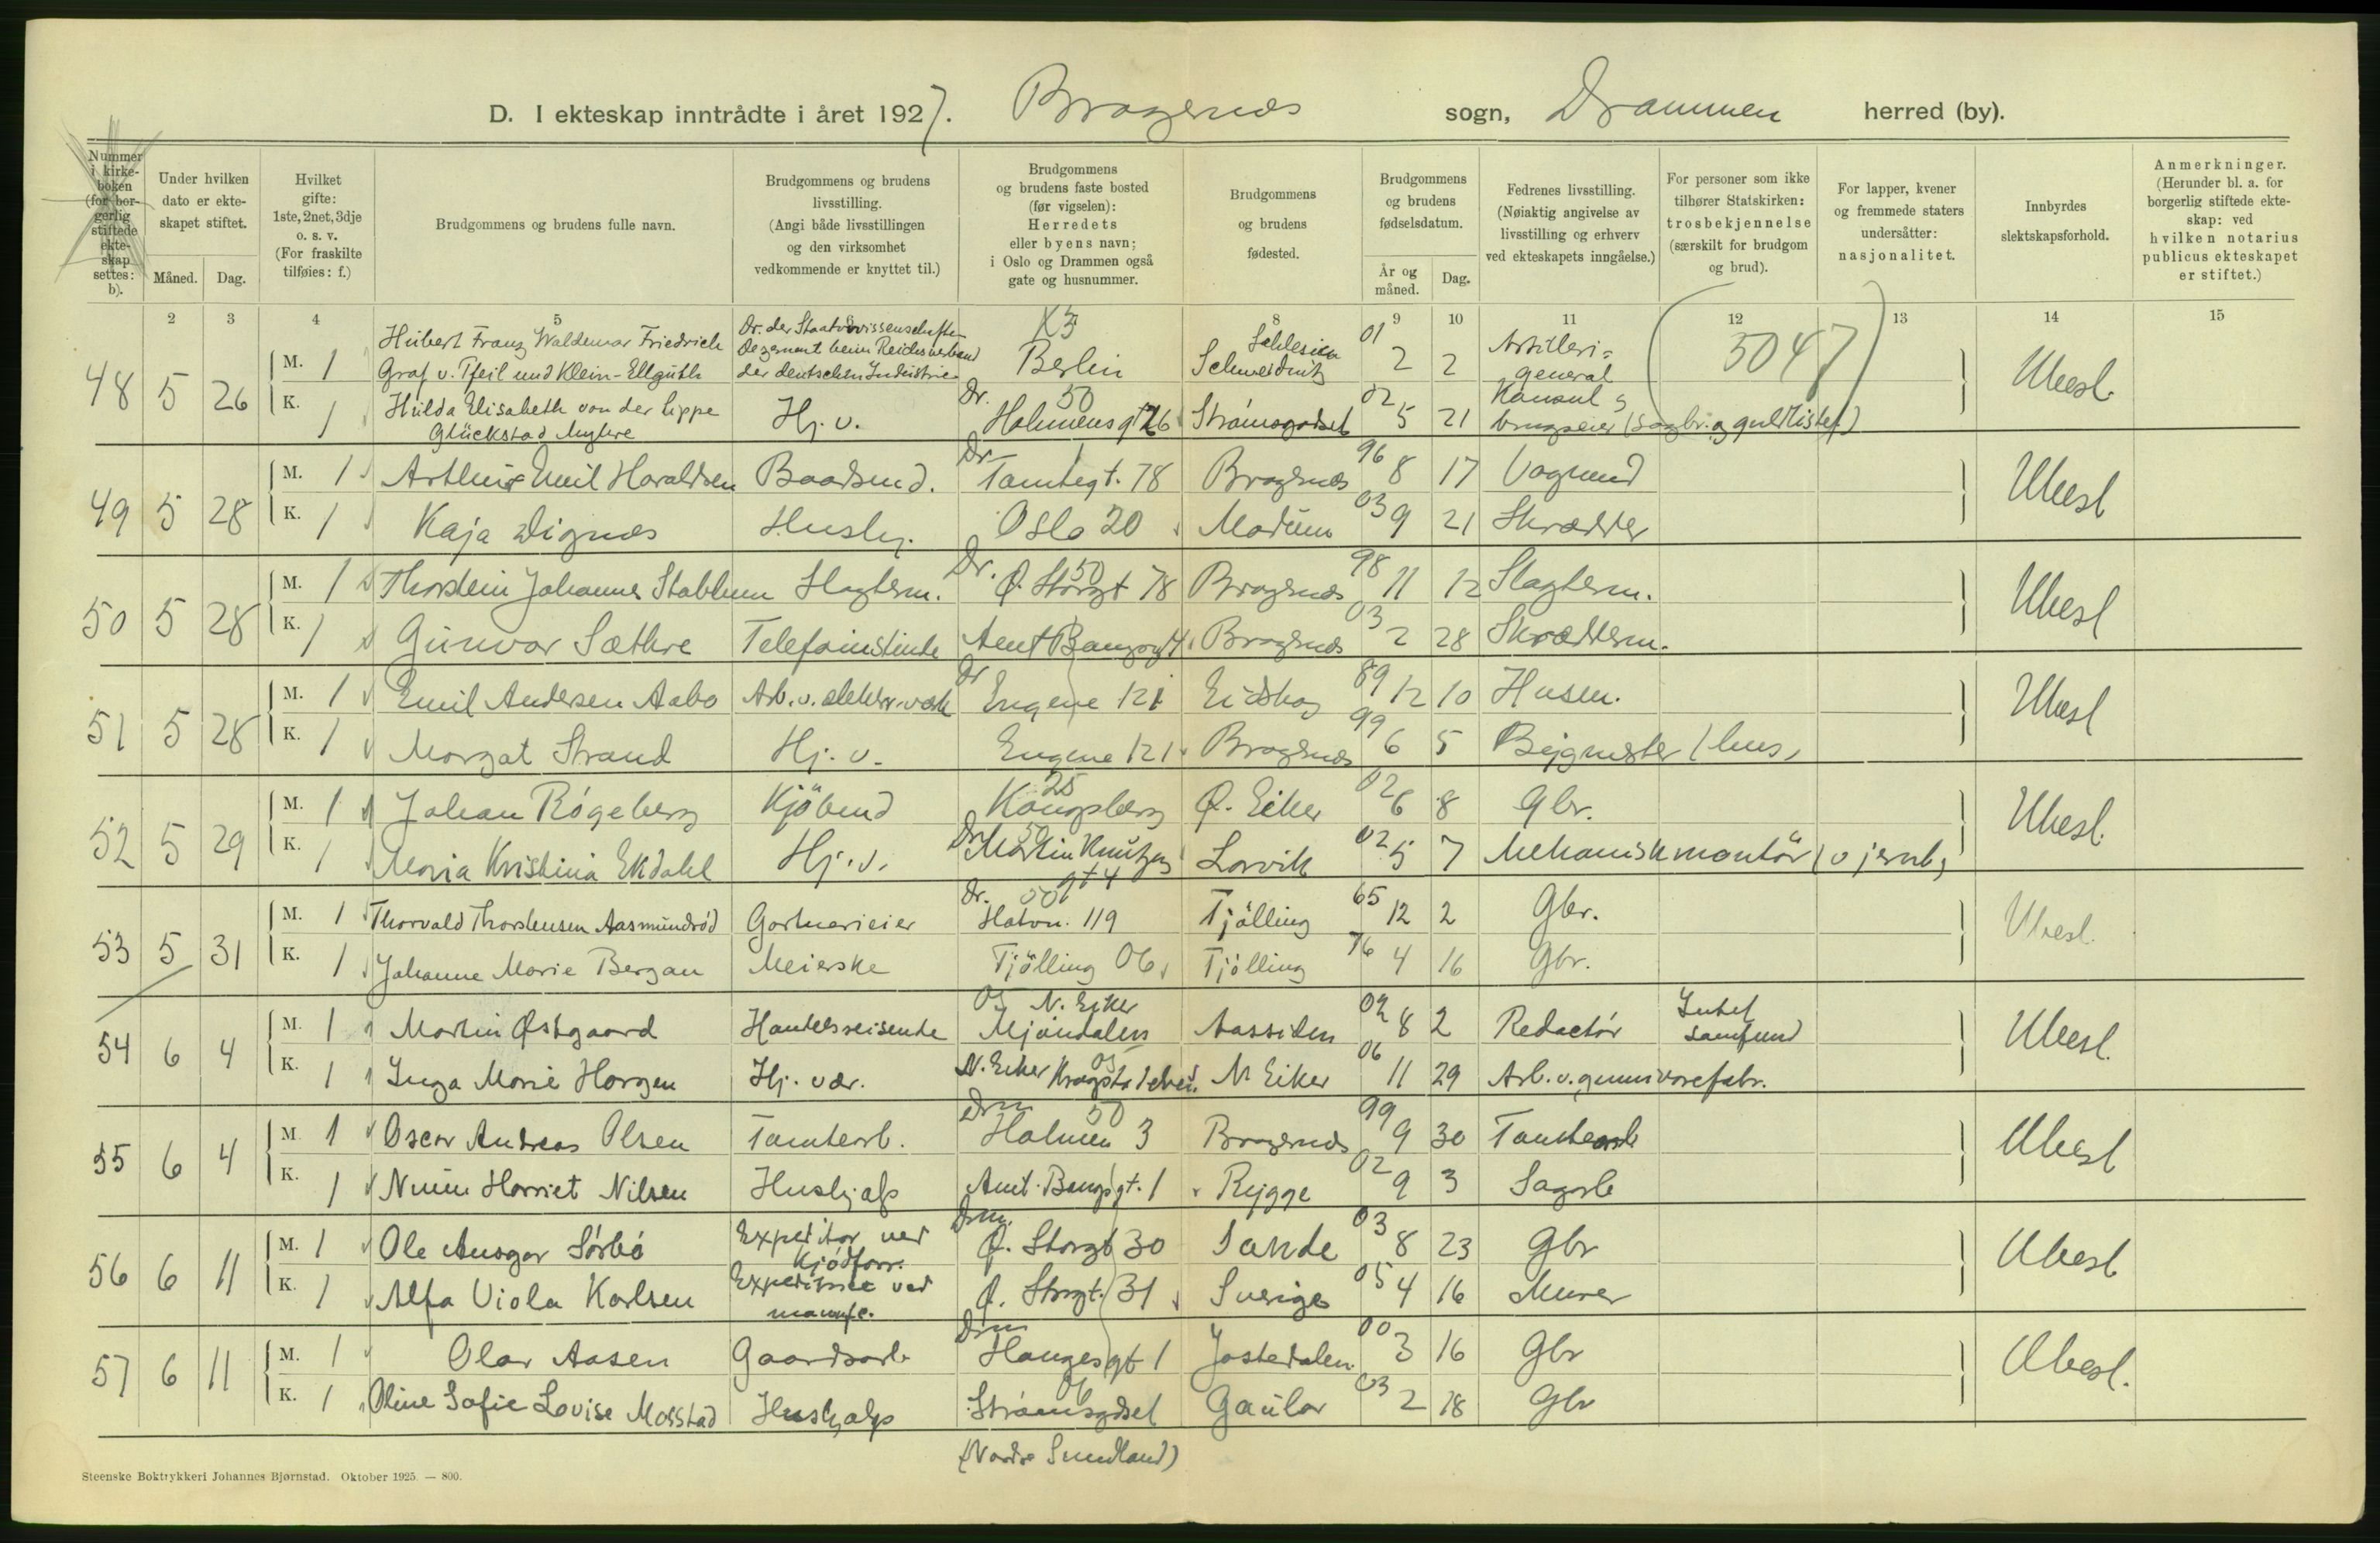 D. I ekteskap inntrådte i året 1927. Bragernes sogn, Drammen herred (by).
Nummer i kirkeboken (for borgerlig stiftede ekteskap settes: b).
Under hvilken dato er ekteskapet stiftet.
Måned. Dag.
Hvilket gifte: 1ste, 2net, 3dje o. s. v. (For fraskilte tilføies: f.)
Brudgommens og brudens fulle navn.
Brudgommens og brudens livsstilling. (Angi både livsstillingen og den virksomhet vedkommende er knyttet til.)
Brudgommens og brudens faste bosted (før vigselen): Herredets eller byens navn; i Oslo og Drammen også gate og husnummer.
Brudgommens og brudens fødested.
Brudgommens og brudens fødselsdatum.
År og måned. Dag.
Fedrenes livsstilling. (Nøiaktig angivelse av livsstilling og erhverv ved ekteskapets inngåelse.)
For personer som ikke tilhører Statskirken: trosbekjennelse (særskilt for brudgom og brud).
For lapper, kvener og fremmede staters undersåtter: nasjonalitet.
Innbyrdes slektskapsforhold.
Anmerkninger. (Herunder bl. a. for borgerlig stiftede ekteskap: ved hvilken notarius publicus ekteskapet er stiftet.)
2 3 4 5 8 9 10 11 12 13 14 15
48 5 26 M. 1 Hubert Franz Waldemar Friedrich Graf v. Pfeil und Klein-Ellguth Dr. der Staatswissenschaften Dezernent beim Reichsverband der deutschen Industrie Berlin Schlesien Schweidnitz 01 2 2 Artilleri-general (5047) Ubesl.
K. 1 Hulda Elisabeth von der Lippe Glückstad Myhre Hj. v. Dr. 50 Holmensgt 26 Strømsgodset 02 5 21 Konsul, brugseier (sagbr. og gulllistef.)
49 5 28 M. 1 Arthur Emil Haraldsen Baadsmd. Dr. Tomtegt. 78 Bragernes 96 8 17 Vognmd Ubesl
K. 1 Kaja Dignes Hushj. Oslo 20 Modum 03 9 21 Skrædder
50 5 28 M. 1 Thorstein Johannes Stabbum Slagterm. Dr. 50 Ø. Storgt 78 Bragernes 98 11 12 Slagterm. Ubesl
K. 1 Gunvor Sæthre Telefonistinde Amt Bangsgt 4 Bragernes 03 2 28 Skrædderm.
51 5 28 M. 1 Emil Andersen Aabo Arb. v. elektr. verk Dr Engene 121 Eidskog 89 12 10 Husm. Ubesl
K. 1 Margot Strand Hj. v. Engene 121 Bragernes 99 6 5 Bygmester (hus)
52 5 29 M. 1 Johan Røgeberg Kjöbmd 25 Kongsberg Ø. Eiker 02 6 8 Gbr. Ubesl.
K. 1 Maria Kristina Ekdahl Hj. v. Dr. 50 Martin Knutzens gt 4 Larvik 02 5 7 Mekanisk montör (v jernb)
53 5 31 M. 1 Thorvald Thorstensen Aasmundrød Gartnerieier Dr. 50 Hotvn. 119 Tjølling 65 12 2 Gbr. Ubesl.
K. 1 Johanne Marie Bergan Meierske Tjölling 06 Tjölling 76 4 16 Gbr.
54 6 4 M. 1 Martin Østgaard Handelsreisende 05 N. Eiker Mjøndalen Aassiden 02 8 2 Redactør Intet samfund Ubesl.
K. 1 Inga Marie Horgen Hj. vær. N. Eiker 05 N. Eiker 06 11 29 Arb. v. gummivarefabr.
55 6 4 M. 1 Oscar Andreas Olsen Tomtearb. Drm 50 Holmen 3 Bragernes 99 9 30 Tomtearb Ubesl
K. 1 Nunn Harriet Nilsen Hushjælp Amt. Bangsgt. 1 Rygge 02 9 3 Sagarb
56 6 11 M. 1 Ole Ansgar Sørbö Expeditør ved Kjødforr. Drm. Ø. Storgt 30 Sande 03 8 23 Gbr Ubesl
K. 1 Alfa Viola Karlsen Expeditrice ved manufc. Ø. Storgt. 31 Sverige 05 4 16 Murer
57 6 11 M. 1 Olav Aasen Gaardsarb Drm Haugesgt 1 Jostedalen 00 3 16 Gbr Ubesl.
K. 1 Oline Sofie Lovise Mosstad Hushjælp 06 Strømsgodset Gaular 03 2 18 Gbr
(Nordre Sundland)
Steenske Boktrykkeri Johannes Bjørnstad. Oktober 1925. — 800.